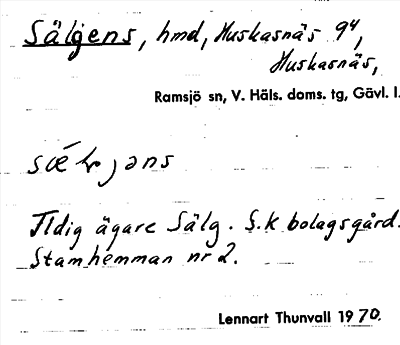 Sälgens, hmd, Huskasnäs 9⁴,
Huskasnäs,
Ramsjö sn, V. Häls. doms. tg, Gävl. l.
Tidig ägare Sälg. S.k bolagsgård.
Stamhemman nr 2.
Lennart Thunvall 1970.